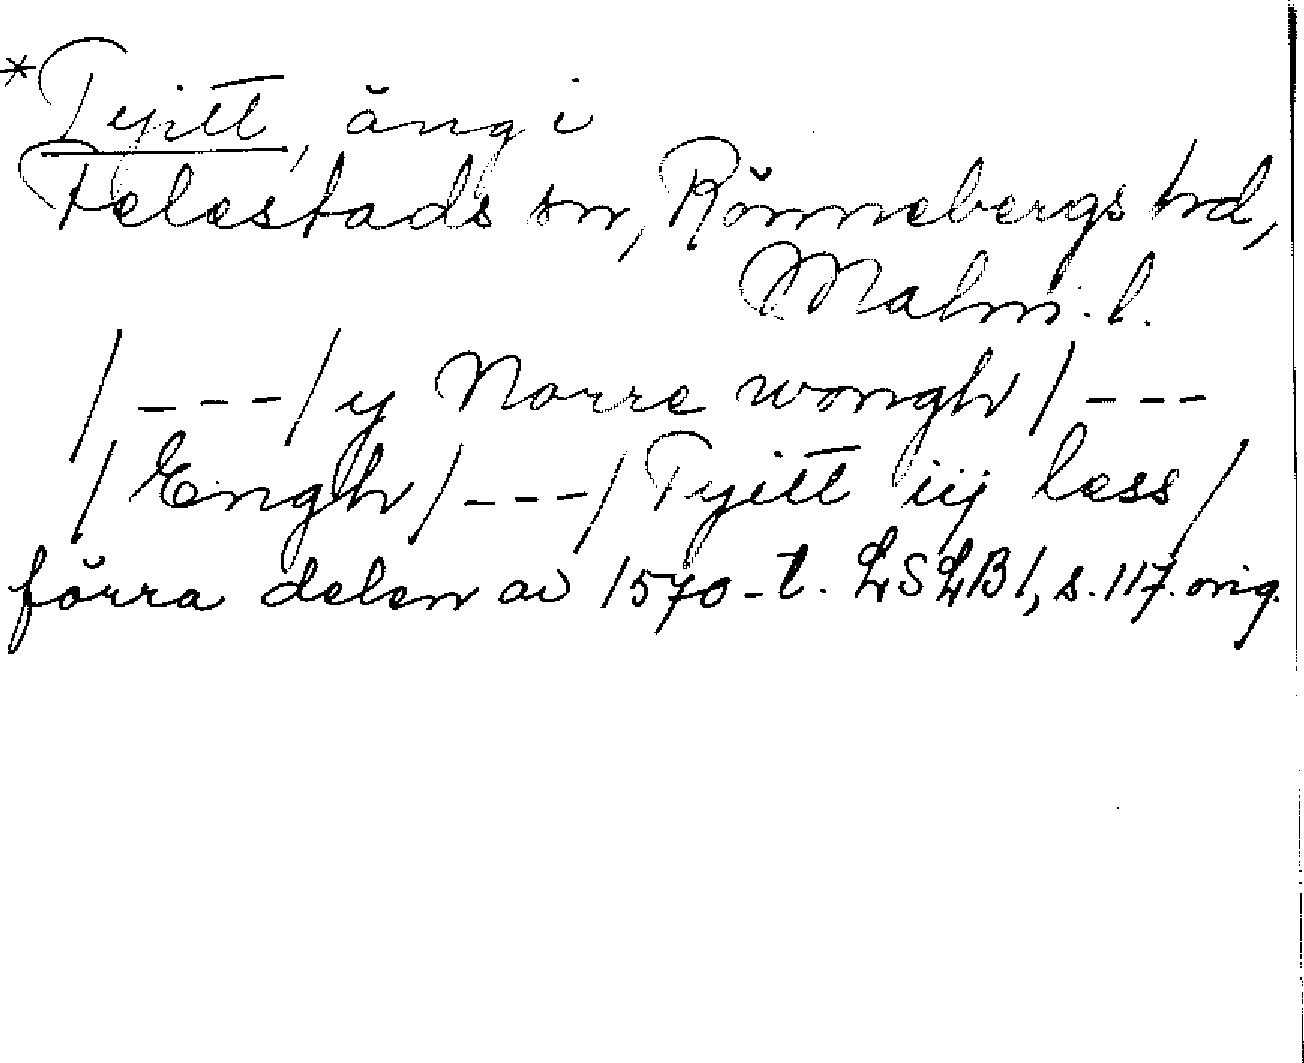 *Tyitt, äng i
Felestads sn, Rönnebergs hd,
Malm. l.
/---/ y Norre wongh /---
/ Engh /---/ Tyitt iij less /
förra delen av 1570-t. LSLB 1, s. 117. orig.